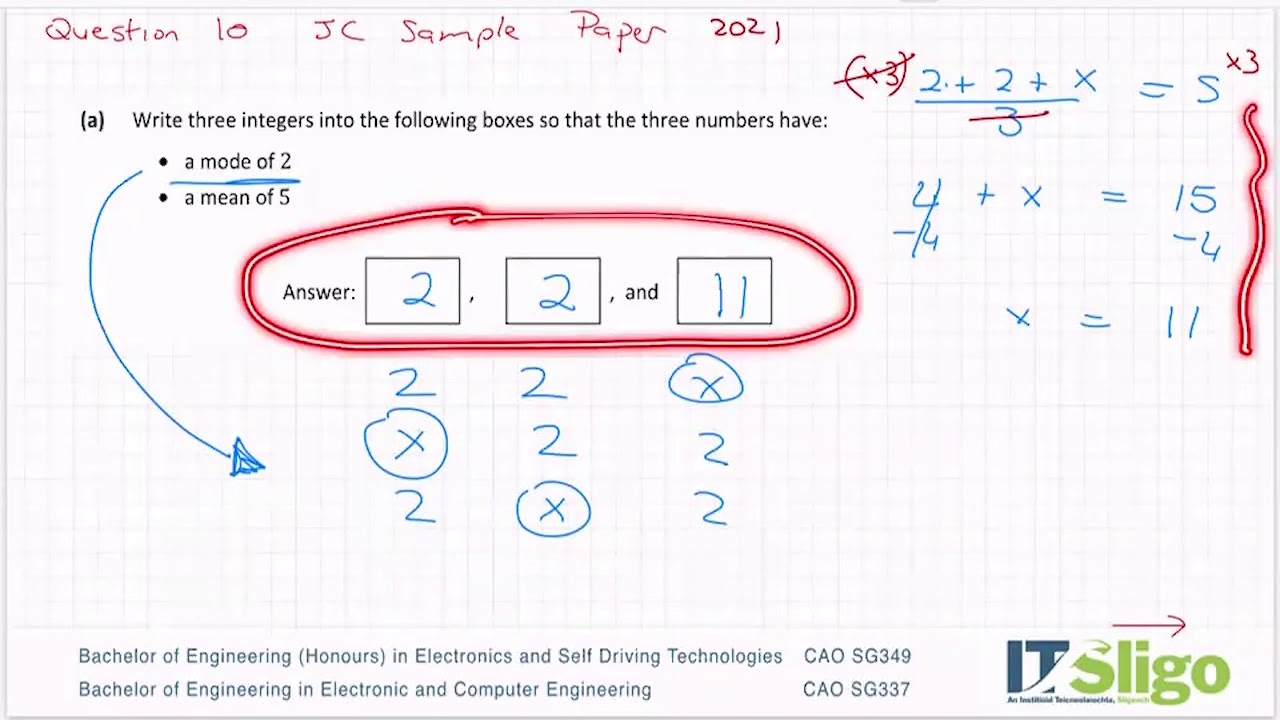 Question 10 JC Sample Paper 2021
(a) Write three integers into the following boxes so that the three numbers have:
• a mode of 2
• a mean of 5
Answer: 2 , 2 , and 11
2 2 x
x 2 2
2 x 2
(x3) 2 + 2 + x = 5 x3
3
4 + x = 15
-4 -4
x = 11
Bachelor of Engineering (Honours) in Electronics and Self Driving Technologies CAO SG349
Bachelor of Engineering in Electronic and Computer Engineering CAO SG337
IT Sligo
An Institiúid Teicneolaíochta, Sligeach